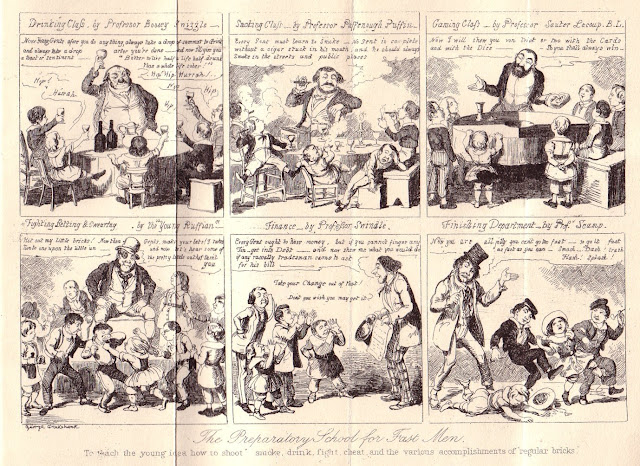 Drinking Class - by Professor Boosey Swizzle -
Now Young Gents afore you do any thing, always take a drop of summut to drink
and always take a drop after you're done - and now fill your glasses
a toast or sentiment - "Better to be half a life half drunk
Than a whole life sober"!!!
Hip Hip Hurrah!
Hip!
Hip!
Hurrah
Hip,
Hip,
Smoking Class - by Professor Puffenough Puffin -
Every Gent must learn to Smoke - No Gent is complete
without a cigar stuck in his mouth and he should always
Smoke in the streets and public places
Gaming Class - by Professor Sauter Lecoup. B.L.
Now I will show you von Twist or two with the Cards
and with the Dice - So you shall always win -
Fighting Betting & Swearing - by the "Young Ruffian"
Hit out my little bricks! Now then
Gents, make your bets!
Finance - by Professor Swindle.
Every Gent ought to have money, but if you cannot finger any
Tin - get into Debt - and now show me what you would do
if any rascally tradesman came to ask
for his bill -
Take your Change out of that!
Dont you wish you may get it?
Finishing Department - by Prof.r Scamp.
Now you are all jolly you cant go too fast - so go it fast
as fast as you can - Smash Dash Crash
Flash! Splash!
George Cruikshank
The Preparatory School for Fast Men.
To "teach the young idea how to shoot" smoke, drink, fight, cheat, and the various accomplishments of regular bricks.